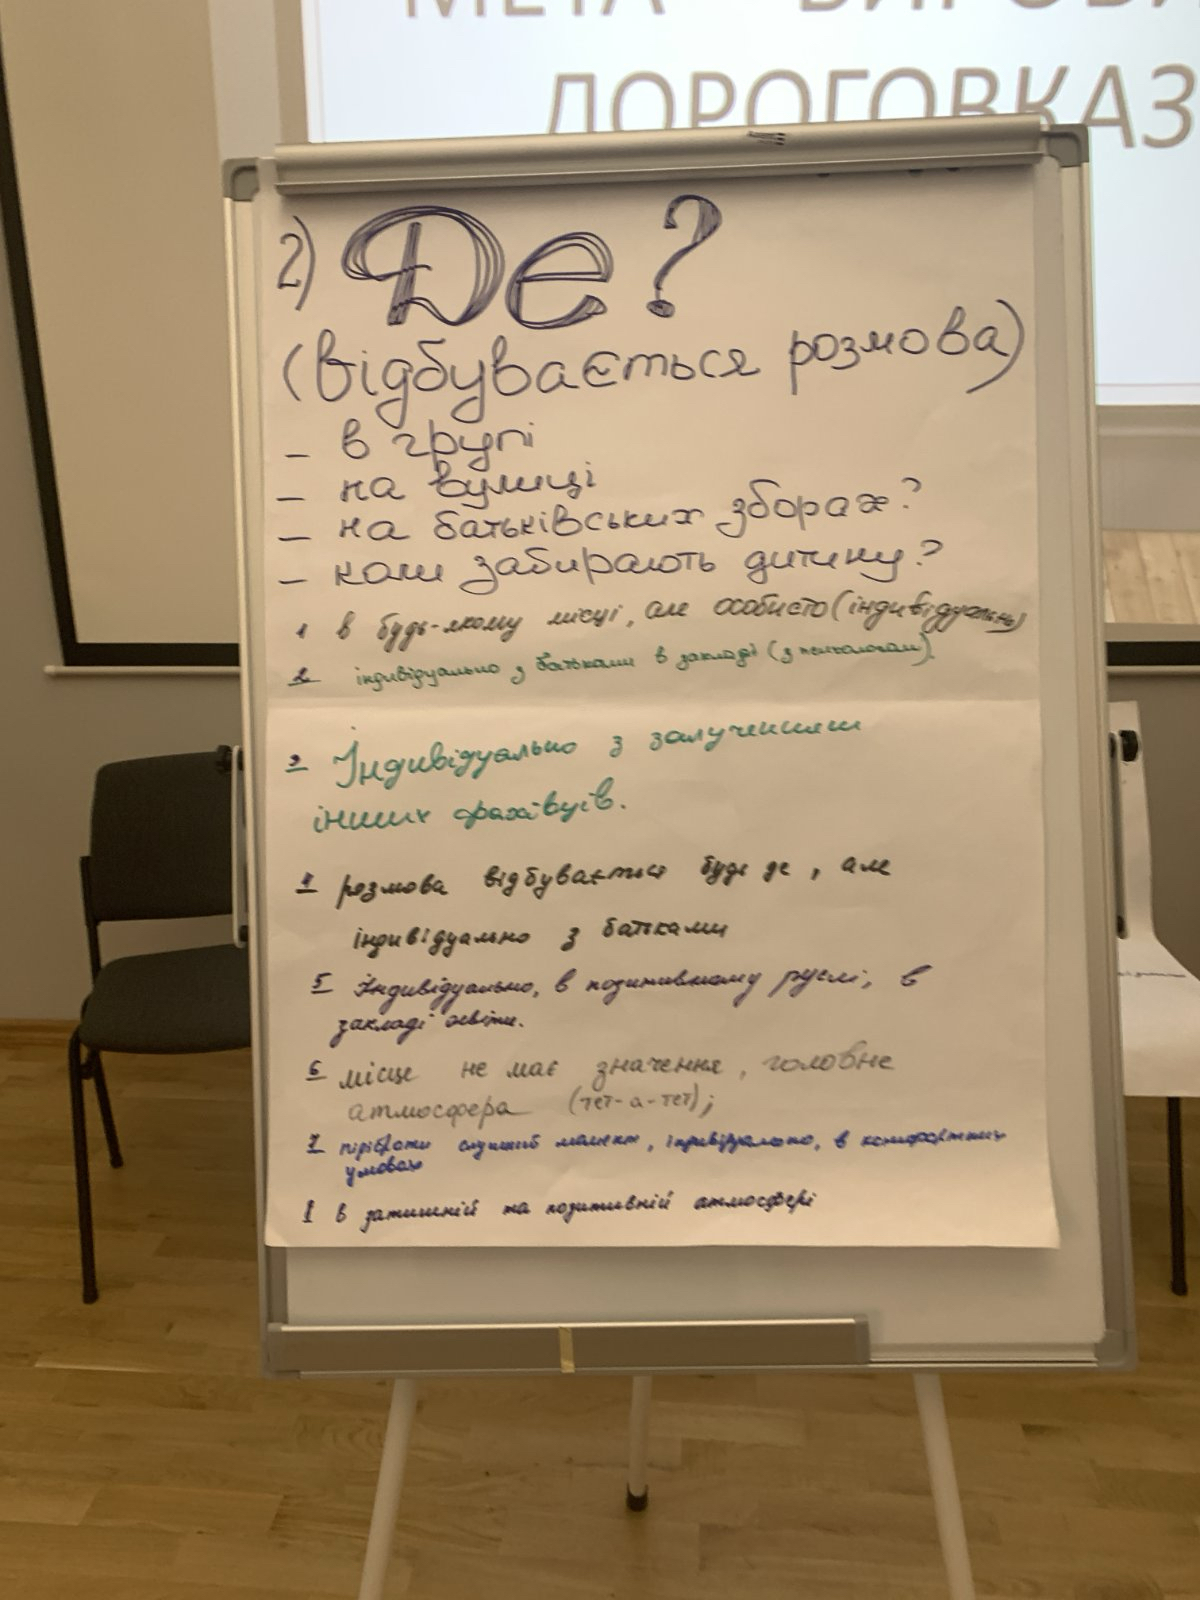 МЕТА
ДОРОГОВКАЗ
2) Де?
(відбувається розмова)
– в групі
– на вулиці
– на батьківських зборах?
– коли забирають дитину?
1 в будь-якому місці, але особисто (індивідуально)
2 індивідуально з батьками в закладі (з психологом).
3 Індивідуально з залученням
інших фахівців.
4 розмова відбувається будь де, але
індивідуально з батьками
5 Індивідуально, в позитивному руслі, в
закладі освіти.
6 місце не має значення, головне
атмосфера (тет-а-тет);
7 слушний момент, індивідуально, в комфортних
умовах
8 в затишній та позитивній атмосфері